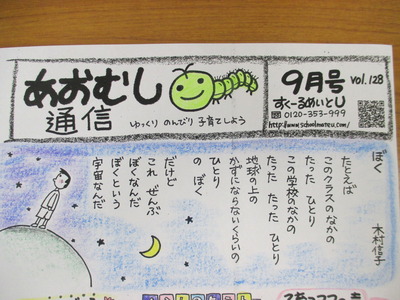 あおむし
通信
ゆっくり のんびり 子育てしよう
9月号 vol.128
すくーるめいとU
0120-353-999
http://www.schoolmateu.com/
ぼく
木村信子
たとえば
このクラスのなかの
たった ひとり
この学校のなかの
たった たった ひとり
地球の上の
かずにならないくらいの
ひとり
の ぼく
だけど
これ ぜんぶ
ぼくなんだ
ぼくという
宇宙なんだ